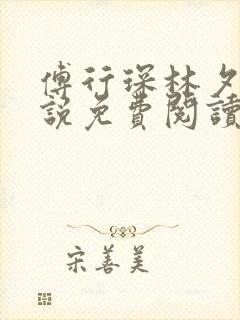 傅行琛林夕
說免費閱讀
宋善美